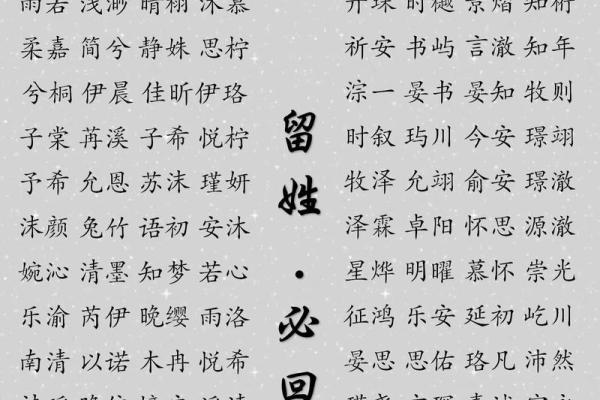 雨若 浅渺 晴栩 沐慕
柔嘉 简兮 静姝 思柠
兮桐 伊晨 佳昕 伊珞
子棠 苒溪 子希 悦柠
予希 允恩 苏沫 瑾妍
沫颜 兔竹 语初 安沐
婉沁 清墨 知梦 若心
乐渝 芮伊 晚缨 雨洛
南清 以诺 木冉 悦希
留姓·必回
时樾 景熠 知衍
祈安 书屿 言澈 知年
淙一 晏书 晏知 牧则
时叙 玙川 今安 璟翊
牧泽 允翊 俞安 璟澈
泽霖 卓阳 怀思 源澈
星烨 明曜 慕怀 崇光
征鸿 乐安 延初 屹川
晏思 思佑 珞凡 沛然